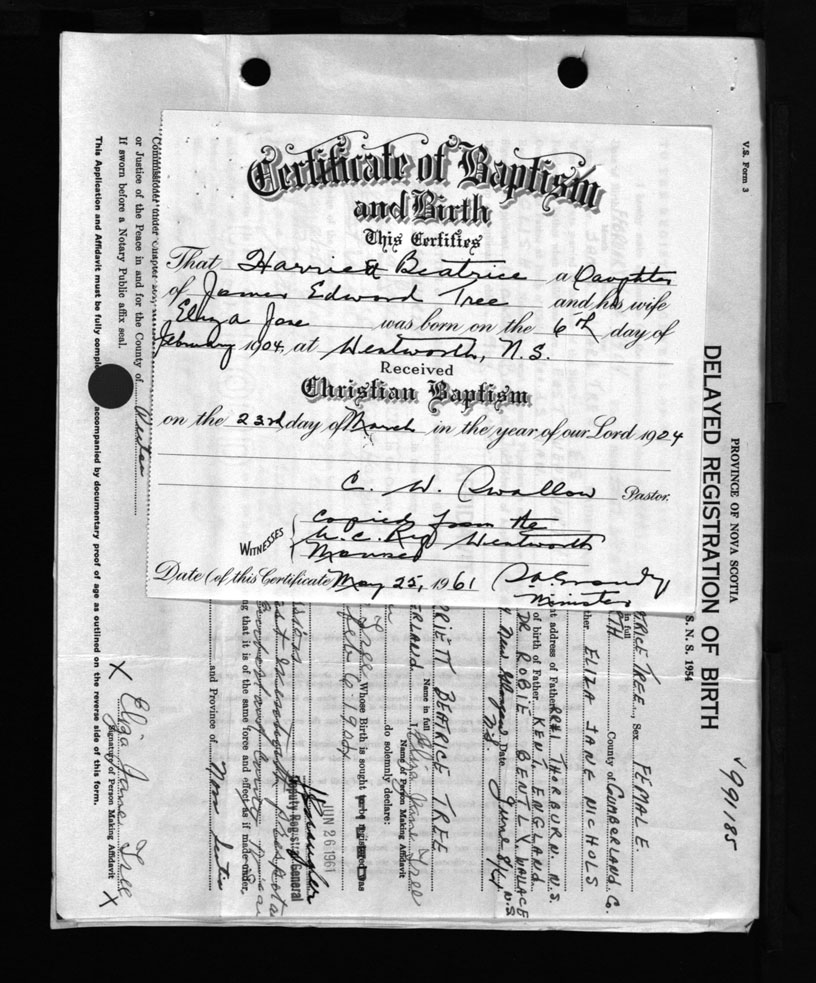 Certificate of Baptism
and Birth
This Certifies
That Harriett Beatrice a Daughter
of James Edward Tree and his wife
Eliza Jane was born on the 6th day of
February 1904, at Wentworth, N.S.
Received
Christian Baptism
on the 23rd day of March in the year of our Lord 1904
C. W. Swallow Pastor.
WITNESSES
Copied from the
U.C. Reg Wentworth
Manse
Date (of this Certificate) May 25, 1961
Minister
V.S. Form 3
PROVINCE OF NOVA SCOTIA
DELAYED REGISTRATION OF BIRTH
S. N. S. 1954
991185
TRICE TREE, Sex FEMALE.
in full
County of CUMBERLAND Co.
ther ELIZA JANE NICHOLS
st address of Father RR#1 THORBURN. N.S.
of birth of Father KENT, ENGLAND.
DR ROBIE BENTLY WALLACE N.S.
New Glasgow N.S. Date June 8/61
RRIETT BEATRICE TREE
Name in full
ERLAND
I, Eliza Jane Tree
Name of Person Making Affidavit
do solemnly declare:
Tree Whose Birth is sought to be registered was
Feb 6 1904
JUN 26 1961
Deputy Registrar General
ng that it is of the same force and effect as if made under
and Province of Nova Scotia
Commissioner under Chapter
or Justice of the Peace in and for the County of
If sworn before a Notary Public affix seal.
X Eliza Jane Tree X
Signature of Person Making Affidavit
This Application and Affidavit must be fully comple accompanied by documentary proof of age as outlined on the reverse side of this form.